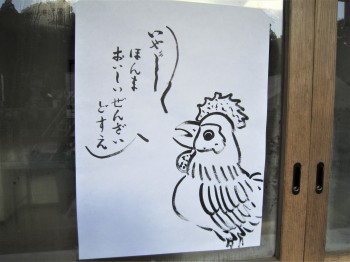 いやぁー
ほんま
おいしいぜんざい
どすえ